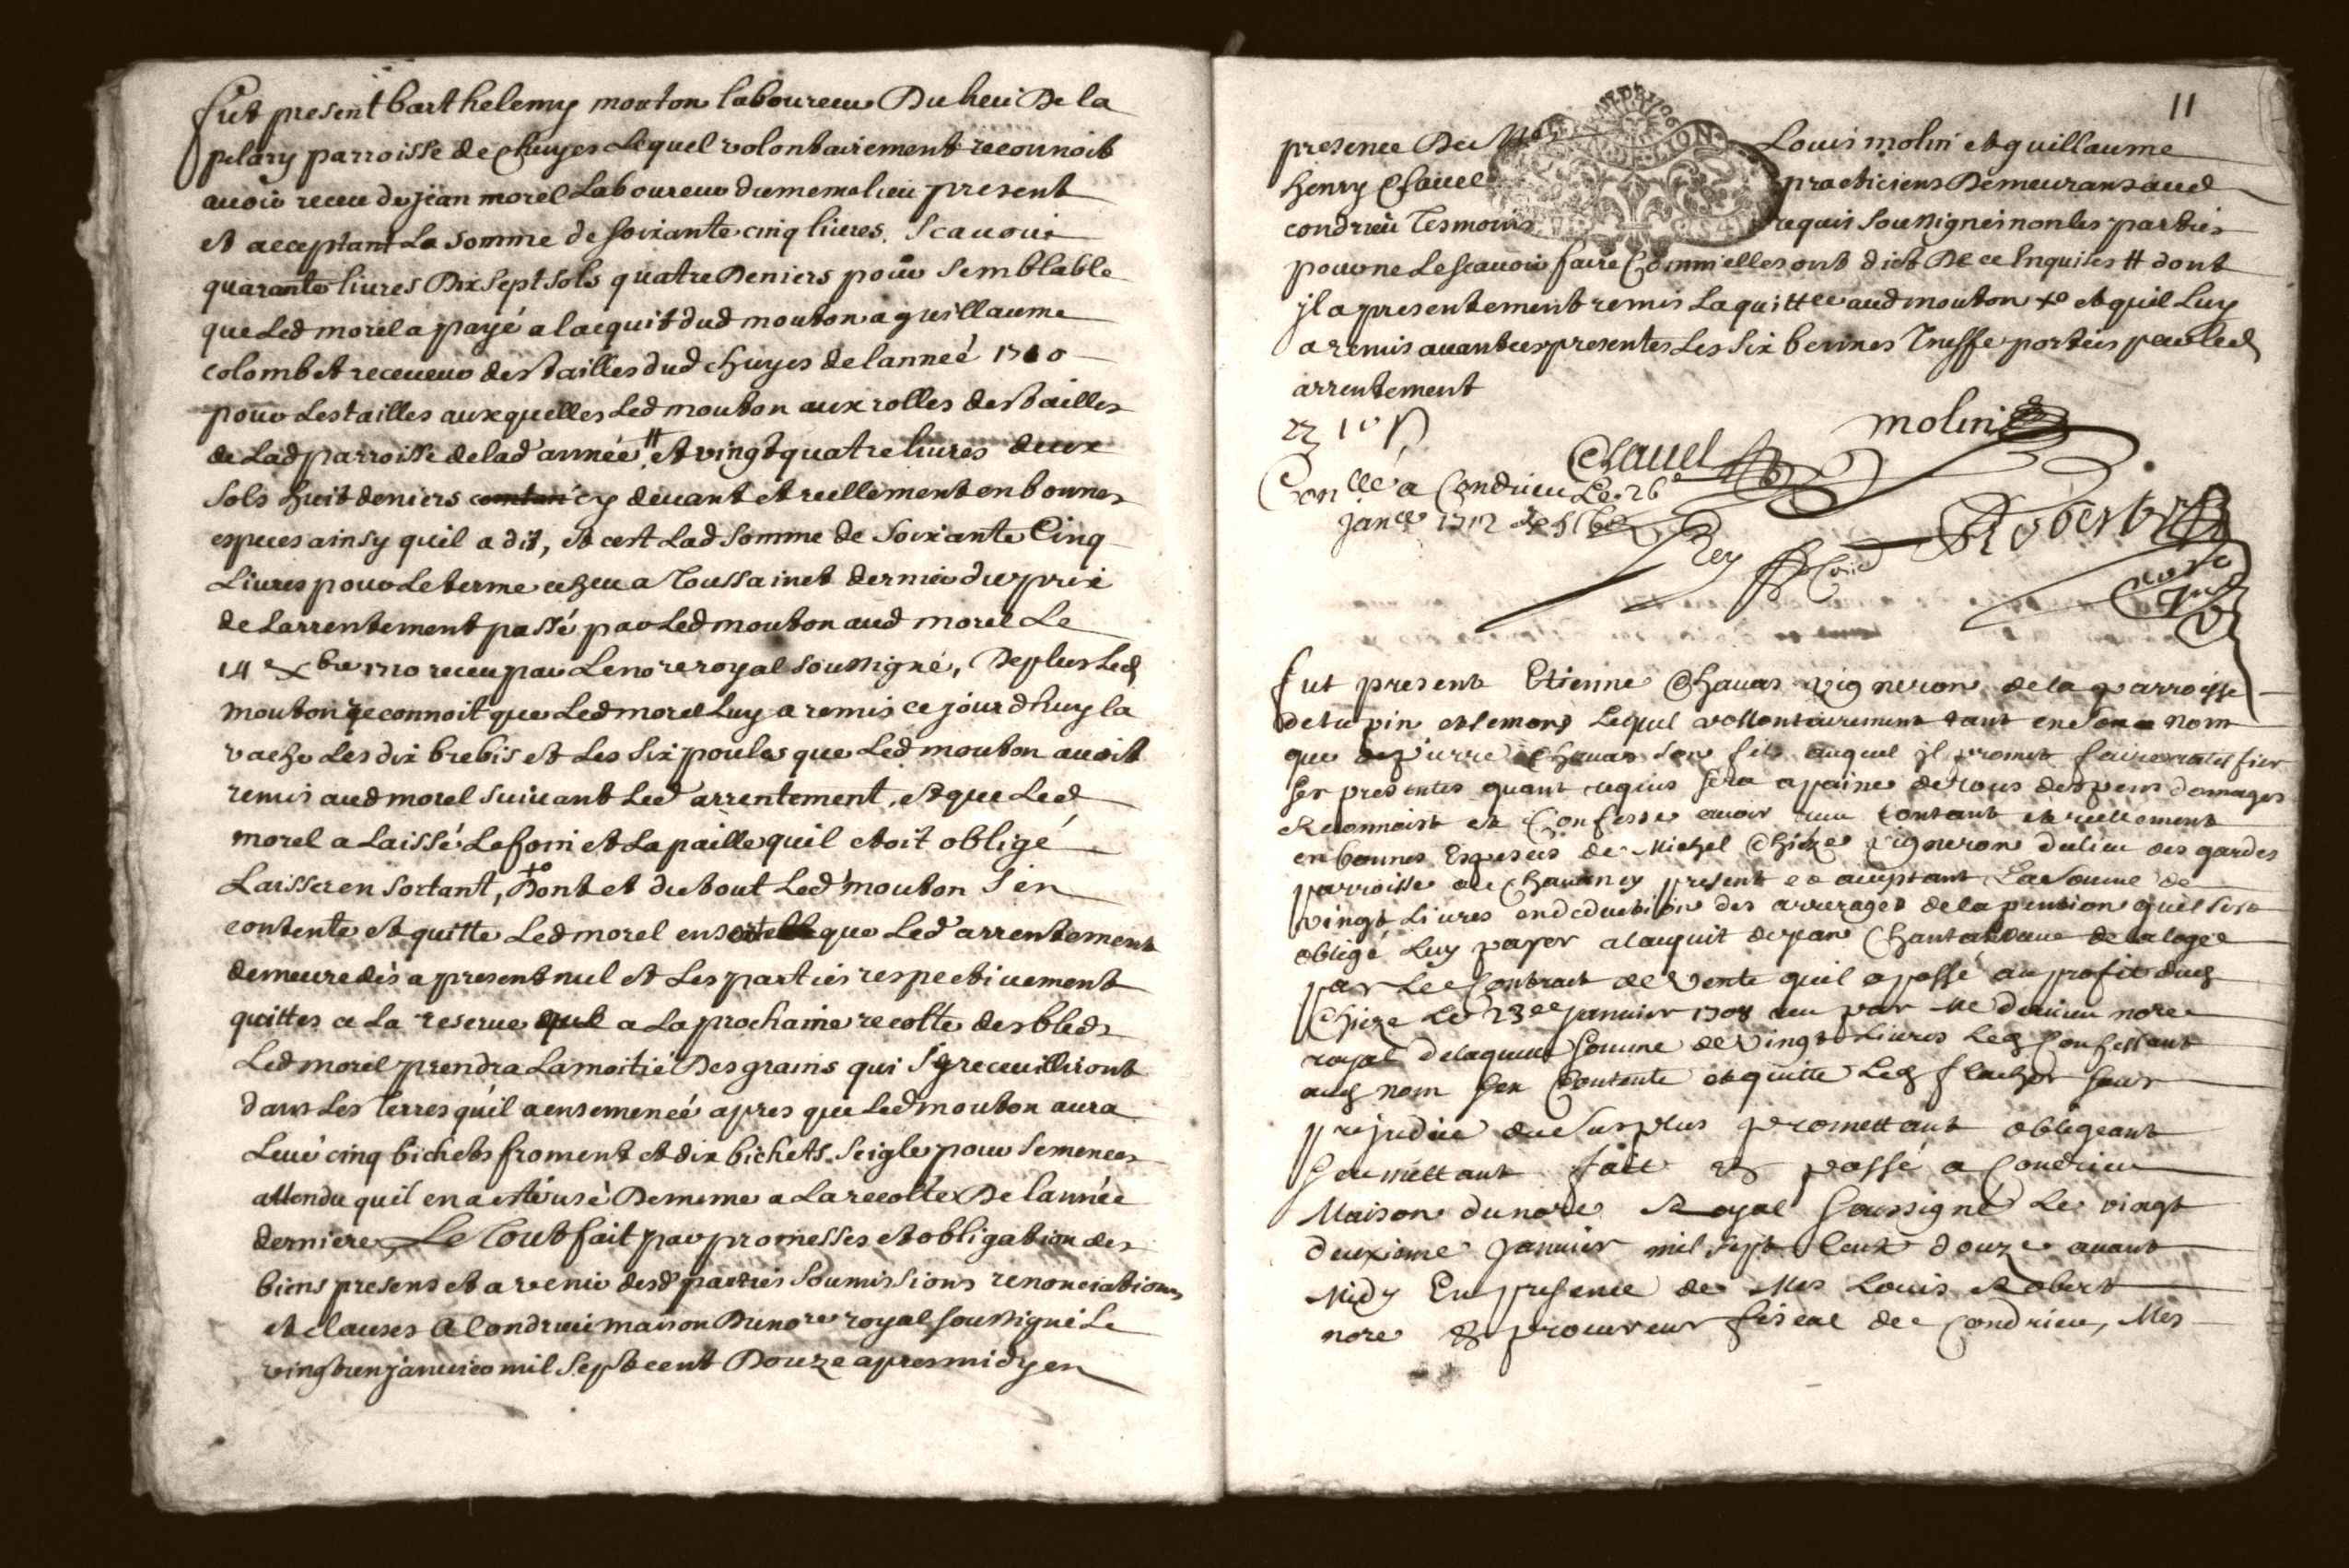 fut present barthelemy mouton laboureur Du lieu De la
pelary parroisse de Chuyes Lequel volontairement reconnoit
auoir receu de jean morel Laboureur du meme lieu present
et acceptant La somme de soixante cinq liures, Scauoir
quarante liures Dix sept sols quatre Deniers pour semblable
que Led morel a payé a lacquit dud mouton a guillaume
colombet receueur des tailles dud chuyes de lanneé 1710
pour Les tailles auxquelles Led mouton aux rolles des tailles
de Lad parroisse de lad année # et vingt quatre liures deux
sols huit deniers cy deuant et reellement en bonnes
especes ainsy quil a dit, et cest Lad somme de soixante Cinq
Liures pour Le terme echeu a Toussainct dernier du prix
de Larrentement passé par Led mouton aud morel Le
14e xbre 1710 receu par Le nore royal soussigné, De plus Led
mouton reconnoit que Led morel Luy a remis ce jourdhuy la
vache Les dix brebis et Les six poules que Led mouton auoit
remis aud morel suiuant Led arrentement, et que Led
morel a Laissé Le foin et La paille quil etoit obligé
Laisser en sortant, +o Dont et du tout Led mouton s'en
contente et quitte Led morel en sorte que Led arrentement
demeure dès a present nul et Les parties respectiuement
quittes a La reserue qu'a La prochaine recolte des bleds
Led morel prendra La moitié Des grains qui s'y receuilliront
dans Les Terres qu'il a ensemencé apres que Led mouton aura
Leué cinq bichets froment et dix bichets seigle pour semences
attendu quil en a esté usé De meme a La recolte De lannée
derniere, Le Tout fait par promesses et obligation des
biens presens et a venir desd parties soumissions renonciations
et clauses A Condrieu maison Du nore royal soussigné Le
vingt un januier mil sept cent Douze apres midy en
11
presence De Louis molin et guillaume
henry Chauel practiciens Demeurans aud
condrieu Tesmoins requis soussignés non les parties
pour ne Le scauoir faire Comm'elles ont dict De ce Enquises # dont
jl a presentement remis La quittce aud mouton +o et quil Luy
a remis auant ces presentes Les six bennes Truffe portées par led
arrentement
molin
Chauel
Conllé a Condrieu Le 26e
janer 1712
Rey
Robert
fut present Etienne Chauas vigneron de la parroisse
de tupin et semons Lequel vollontairement tant en son nom
que de pierre Chauas son fils auquel jl promet faire ratiffier
ses presentes quant requis sera a paine de tous despens domages
Reconnoist et Confesse auoir receu Contant et reellement
en bonnes Especes de Michel Chieze vigneron du lieu des gardes
parroisse de Chauaney present et aceptant La somme de
vingt Liures en deduction des arrerages de la pention quel s'est
obligé Luy payer a lacquit de jean
par Le Contract de vente quil a passé au profit dud
Chieze Le 23e januier 1708 receu par Me nore
royal de laquelle somme de vingt Liures Led Confessant
aud nom sen Contente et quitte Led sans
prejudice du surplus promettant obligeant
soumettant fait et passé a Condrieu
Maison du nore Royal soussigné Le vingt
deuxieme januier mil sept Cent douze auant
Midy En presence de Mes Louis Robert
nore & procureur fiscal de Condrieu, Mes